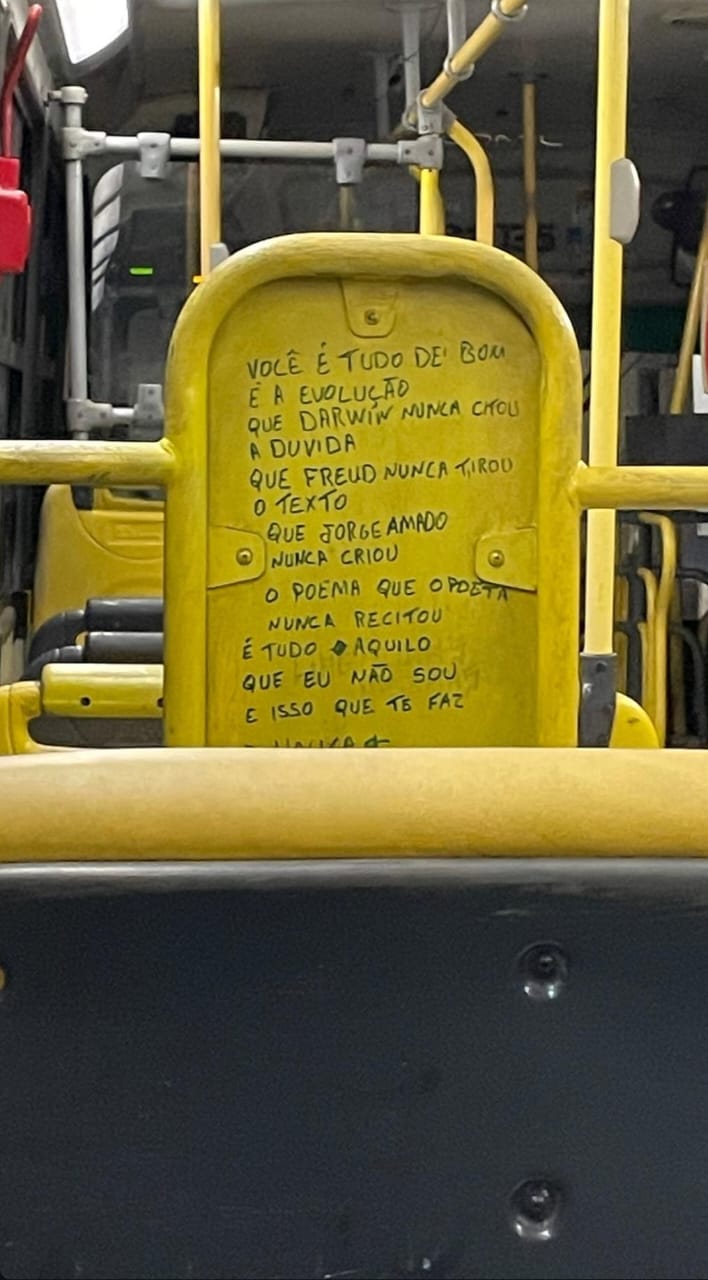 VOCÊ É TUDO DE' BOM
E A EVOLUÇÃO
QUE DARWIN NUNCA CITOU
A DUVIDA
QUE FREUD NUNCA TIROU
O TEXTO
QUE JORGE AMADO
NUNCA CRIOU
O POEMA QUE O POETA
NUNCA RECITOU
É TUDO AQUILO
QUE EU NÃO SOU
E ISSO QUE TE FAZ